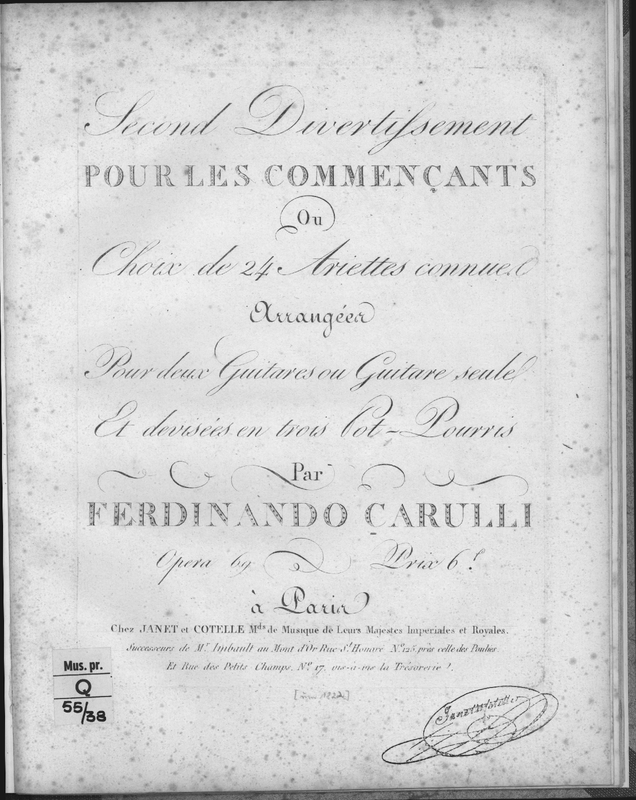 Second Divertissement
POUR LES COMMENÇANTS
Ou
Choix de 24 Ariettes connues
Arrangées
Pour deux Guitares ou Guitare seule
Et devisées en trois Pot-Pourris
Par
FERDINANDO ÇARULLI
Opera 69 Prix 6.f
à Paris
Chez JANET et COTELLE Mds de Musique de Leurs Majestés Imperiales et Royales.
Successeurs de Mr. Imbault au Mont d'Or Rue St. Honoré No. 125, près celle des Poulies
Et Rue des Petits Champs, No. 17, vis-à-vis la Trésorerie.
Mus. pr.
Q
55/38
Janet et Cotelle